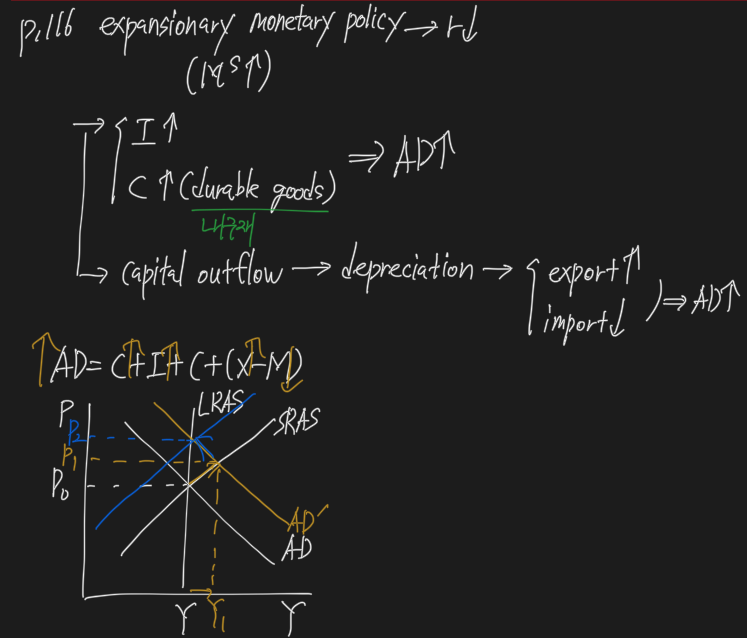 p.116 expansionary monetary policy → r↓
(Mˢ↑)
→ { I ↑
C ↑ (durable goods) ⇒ AD↑
내구재
→ capital outflow → depreciation → { export↑
import↓ ) ⇒ AD↑
↑AD = C↑+I↑+C+(X↑-M↓)
P
LRAS
SRAS
P₂
P₁
P₀
AD′
AD
Y
Y₁
Y